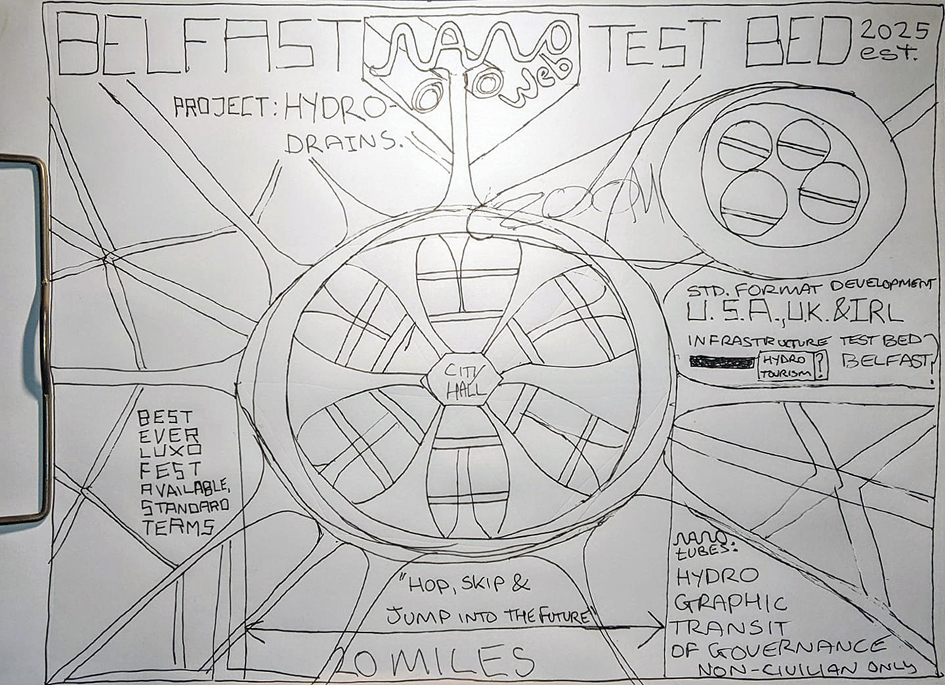 BELFAST NANO WEB TEST BED 2025 est.
PROJECT: HYDRO-
DRAINS.
ZOOM
STD. FORMAT DEVELOPMENT
U.S.A., U.K. & IRL
INFRASTRUCTURE TEST BED?
HYDRO TOURISM? BELFAST?
CITY
HALL
BEST
EVER
LUXO
FEST
AVAILABLE,
STANDARD
TEAMS
"HOP, SKIP &
JUMP INTO THE FUTURE"
20 MILES
NANO
TUBES:
HYDRO
GRAPHIC
TRANSIT
OF GOVERNANCE
NON-CIVILIAN ONLY